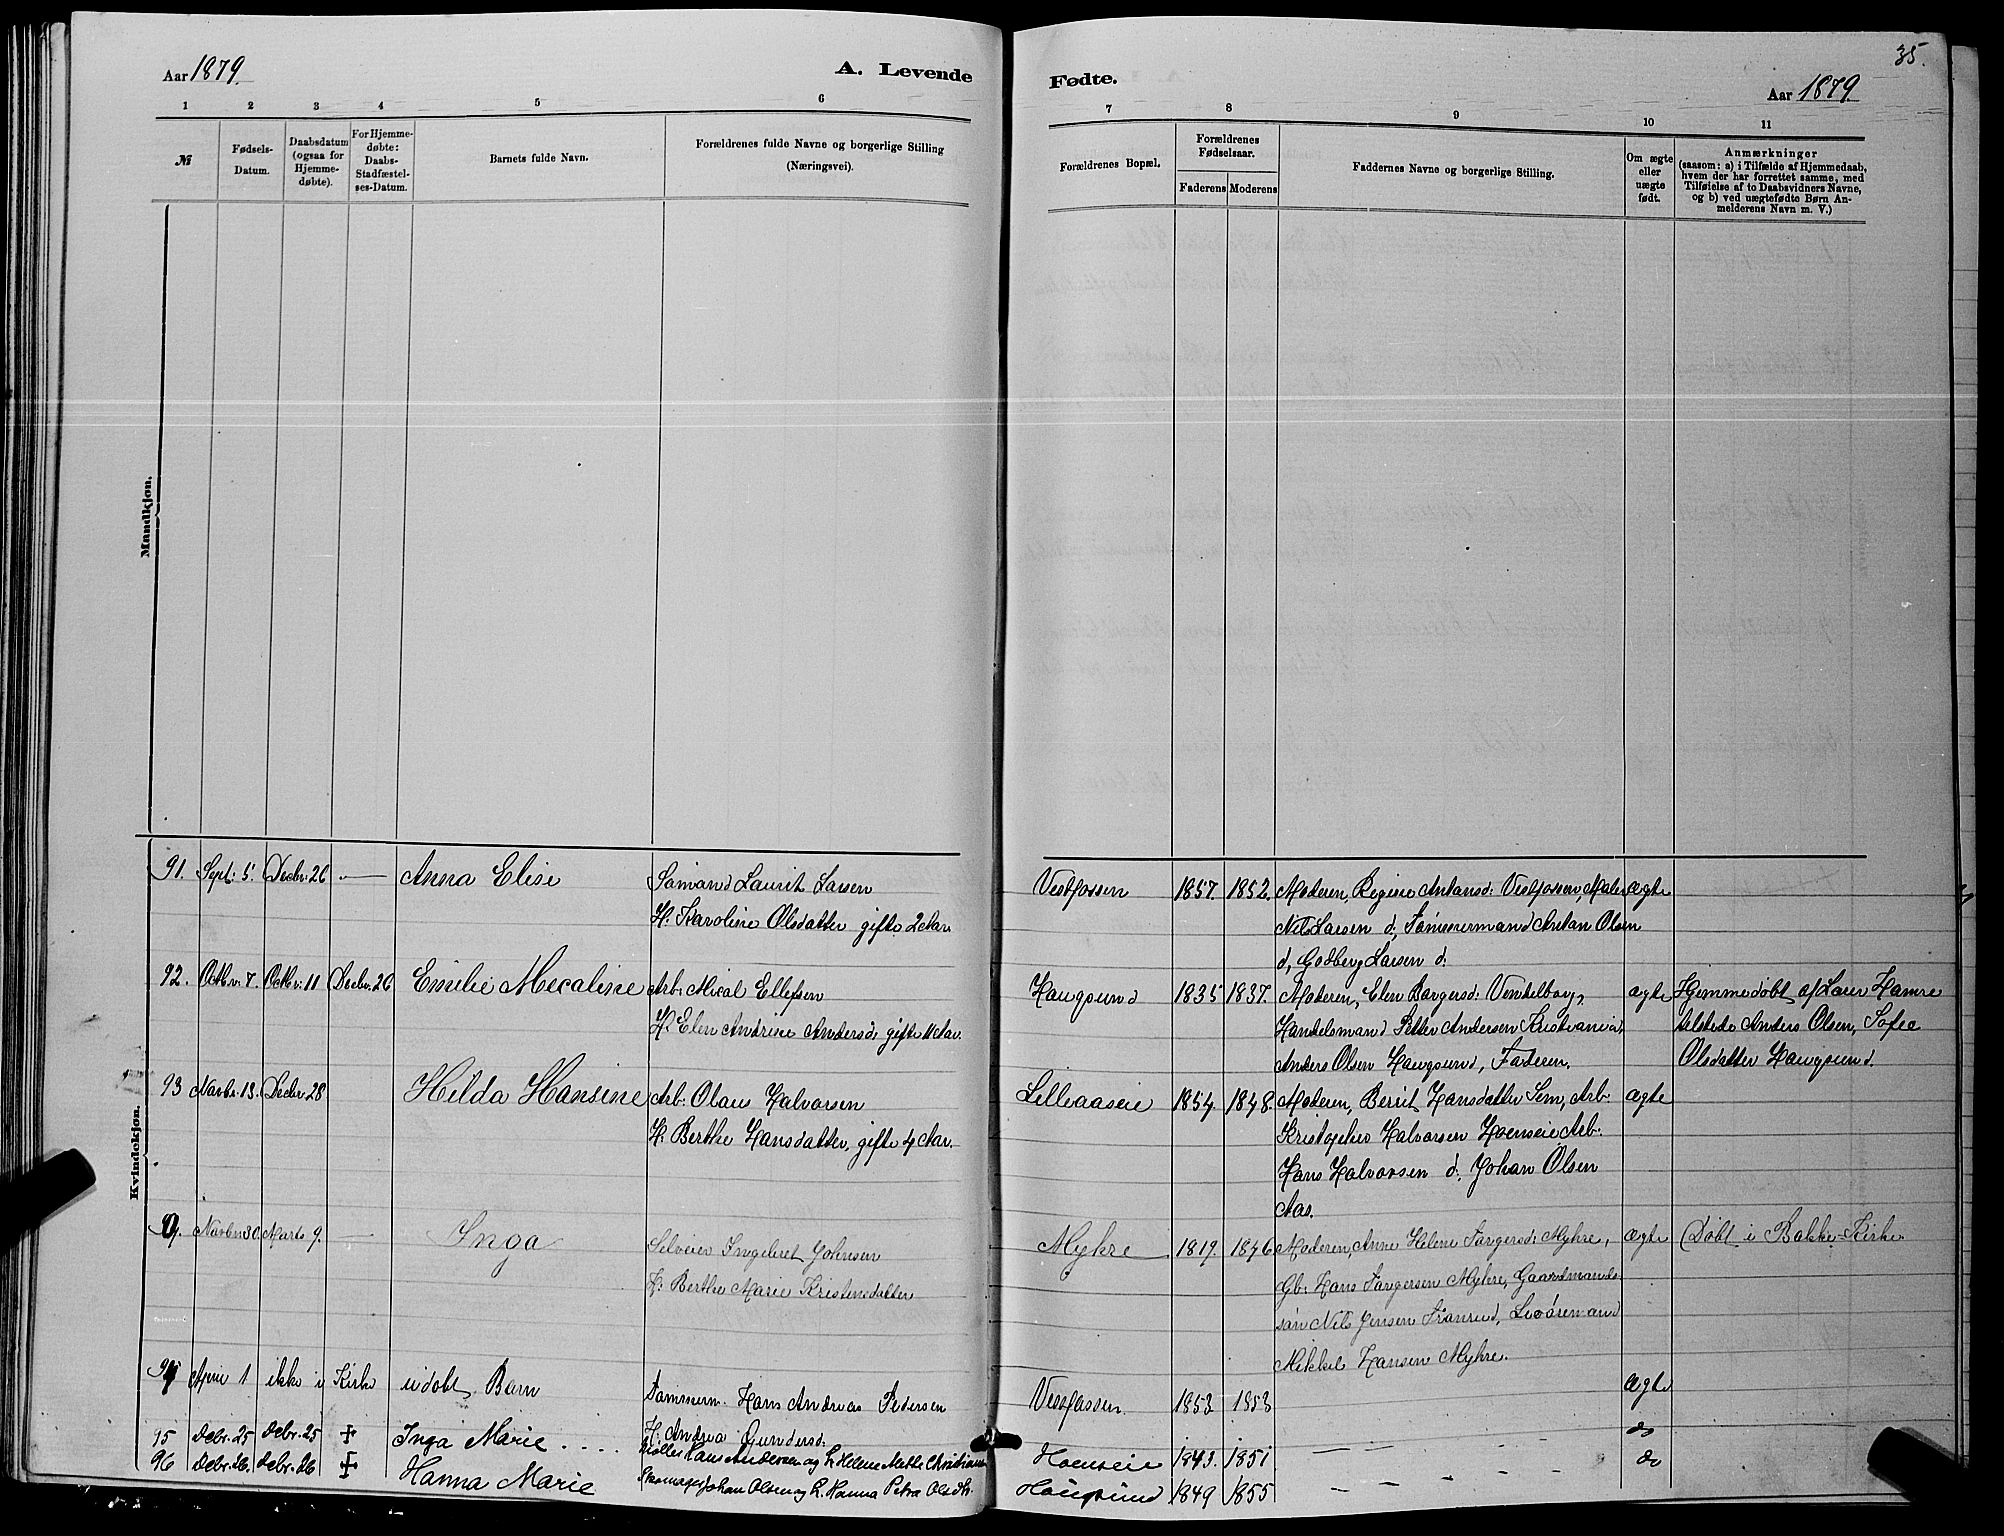 35.
Aar 1879.
A. Levende
Fødte.
Aar 1879.
1 2 3 4 5 6
7 8 9 10 11
№
Fødsels-
Datum.
Daabsdatum
(ogsaa for
Hjemme-
døbte).
For Hjemme-
døbte:
Daabs-
Stadfæstel-
ses-Datum.
Barnets fulde Navn.
Forældrenes fulde Navne og borgerlige Stilling
(Næringsvei).
Forældrenes Bopæl.
Forældrenes
Fødselsaar.
Faderens Moderens
Faddernes Navne og borgerlige Stilling.
Om ægte
eller
uægte
født.
Anmærkninger
(saasom: a) i Tilfælde af Hjemmedaab,
hvem der har forrettet samme, med
Tilføielse af to Daabsvidners Navne,
og b) ved uægtefødte Børn An-
melderens Navn m. V.)
Mandkjøn.
Kvindekjøn.
91. Sept: 5. Decbr: 26 — Anna Elise
Lamand Laurit Larsen
H: Karoline Olsdatter gifte 2 Aar
Vestfossen 1857. 1852. Moderen, Regine Antonsd: Vestfossen, Maler ægte
Nils Larsen d:, Tømmermand Anton Olsen
d, Godberg Larsen d:
92. Octbr: 7. Octbr: 11 Decbr: 26 Emilie Mecaline
Arb: Micael Ellefsen
H: Elen Andrine Andersd: gifte 11 Aar.
Haugsund 1835 1837. Moderen, Elen Borgersd: Vendelborg, ægte
Handelsmand Petter Andersen Kristiania,
Anders Olsen Haugsund, Faderen.
Hjemmedøbt af Laur Hamre
tilstede Anders Olsen, Sofie
Olsdatter Haugsund.
93 Novbr: 13. Decbr 28 Hilda Hansine
Arb: Olaus Halvorsen
H: Berthe Hansdatter, gifte 4 Aar.
Lilleaaseie 1854. 1848. Moderen, Berit Hansdatter Sem, Arb: ægte
Kristopher Halvorsen Hoenseie Arb:
Hans Halvorsen d:, Johan Olsen
Aas.
Novbr 30. Marts 9. — Inga
Selveier Ingebret Johnsen
H: Berthe Marie Kristensdatter
Myhre 1819. 1846 Moderen, Anne Helene Torgersd: Myhre, ægte
Gb: Hans Torgersen Myhre, Gaardmands-
søn Nils Jensen, Livøremand
Mikkel Hansen Myhre.
Døbt i Bakke-Kirke
94 April 1 ikke i Kirke udøbt Barn
Tømmerm. Hans Andreas Pedersen
H: Andrea Gundersd:
Vestfossen. 1853 1853 ægte
95 Decbr. 25 Decbr. 25 + Inga Marie
Møller Hans Andersen og H. Helene Mathe Christians
Hoenseie 1843. 1851 — — — do
96 Decbr. 26. Decbr. 26 + Hanna Marie
Skomager Johan Olsen og H. Hanna Petra Olsdtr.
Haugsund 1849 1855 — — — do